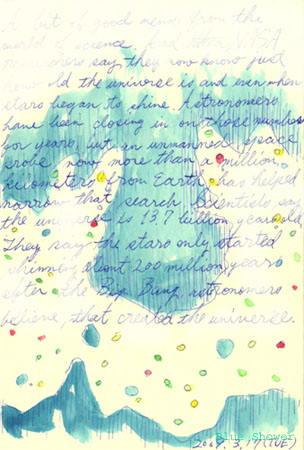 A bit of good news from the
world of science, and NASA
researchers say they now know just
how old the universe is and even when
stars began to shine. Astronomers
have been closing in on those numbers
for years, but an unmanned space
probe now more than a million
kilometers from Earth has helped
narrow that search. Scientists say
the universe is 13.7 billion years old.
They say the stars only started
shinning about 200 million years
after the Big Bang, astronomers
believe, that created the universe.
Blue Shower
2009. 3. 17 (TUE)